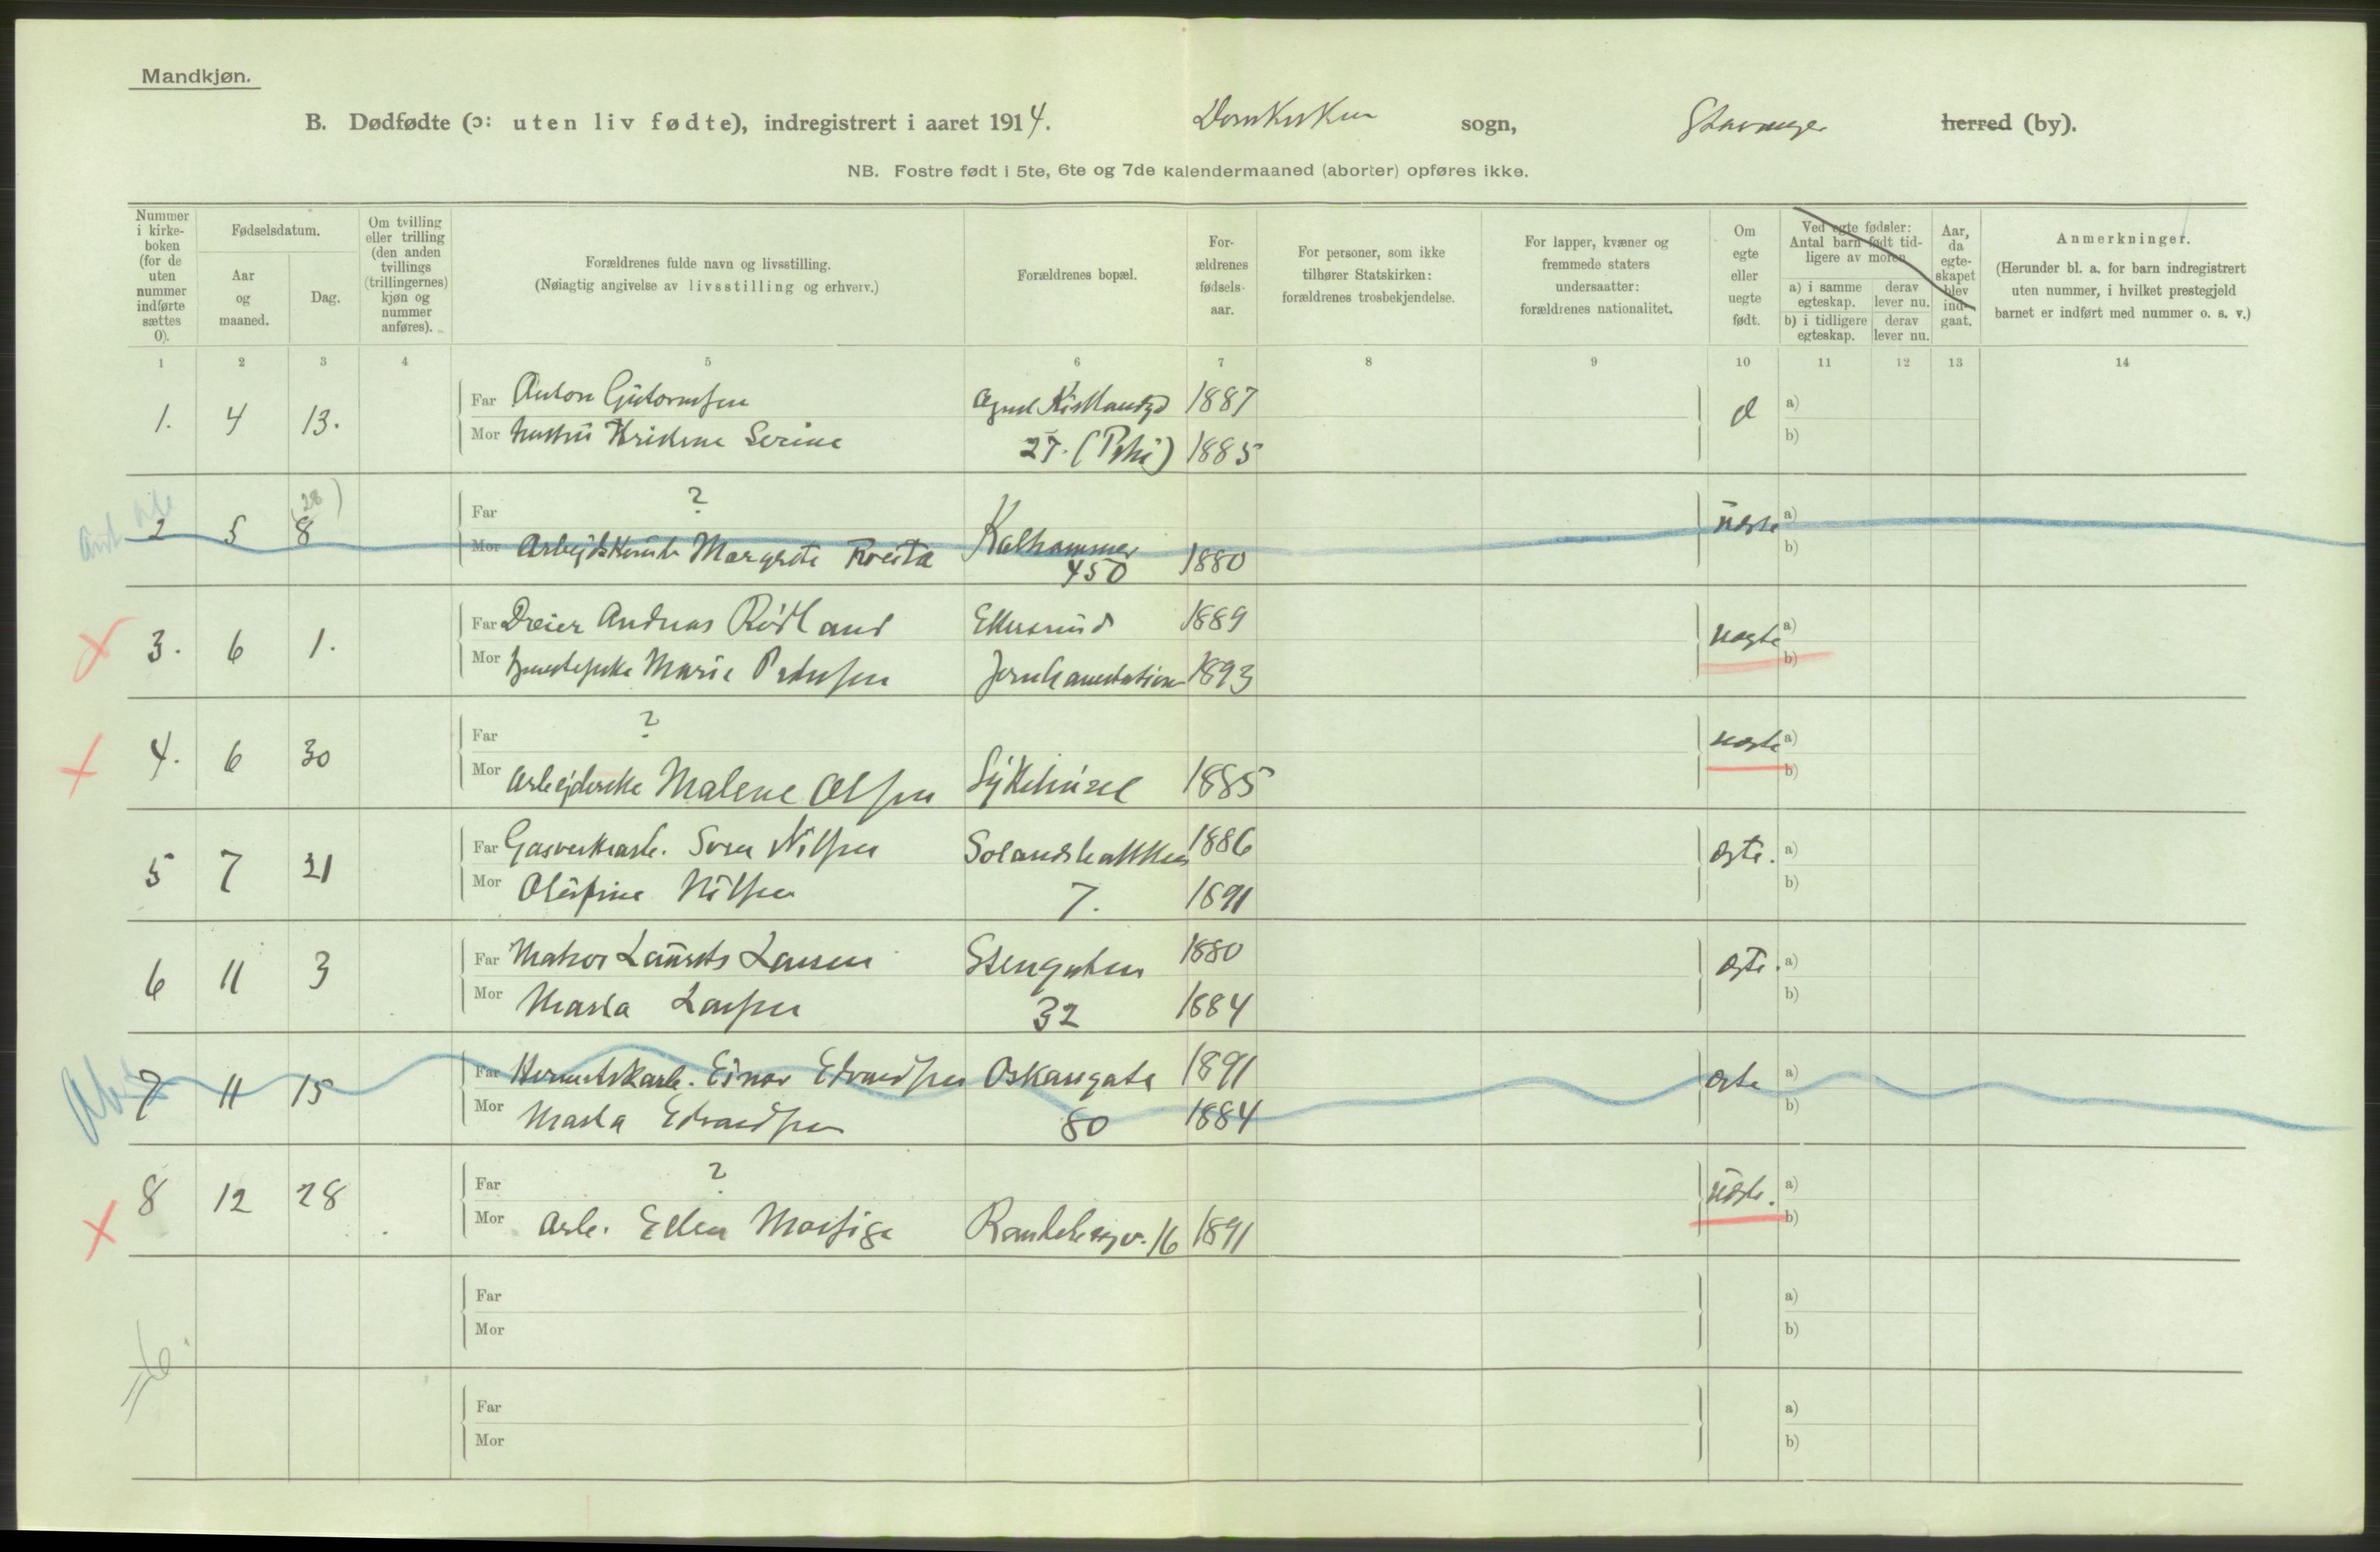 Mandkjøn.
B. Dødfødte (ɔ: uten liv fødte), indregistrert i aaret 1914. Domkirken sogn, Stavanger herred (by).
NB. Fostre født i 5te, 6te og 7de kalendermaaned (aborter) opføres ikke.
Nummer i kirke-boken (for de uten nummer indførte sættes 0).
Fødselsdatum.
Aar og maaned.
Dag.
Om tvilling eller trilling (den anden tvillings (trillingernes) kjøn og nummer anføres).
Forældrenes fulde navn og livsstilling.
(Nøiagtig angivelse av livsstilling og erhverv.)
Forældrenes bopæl.
For-ældrenes fødsels-aar.
For personer, som ikke tilhører Statskirken: forældrenes trosbekjendelse.
For lapper, kvæner og fremmede staters undersaatter: forældrenes nationalitet.
Om egte eller uegte født.
Ved egte fødsler: Antal barn født tid-ligere av moren
a) i samme egteskap. derav lever nu.
b) i tidligere egteskap. derav lever nu.
Aar, da egte-skapet blev ind-gaat.
Anmerkninger.
(Herunder bl. a. for barn indregistrert uten nummer, i hvilket prestegjeld barnet er indført med nummer o. s. v.)
1 2 3 4 5 6 7 8 9 10 11 12 13 14
1. 4 13. Far Anton 1887 a)
Mor Serine 27. 1885 b)
2 5 8 (28) Far ? Kalhammer a)
Mor Margrete 450 1880 b)
3. 6 1. Far Dreier Andreas 1889 uegte a)
Mor Marie Pedersen Jernbanestation 1893 b)
4. 6 30 Far ? uegte a)
Mor Arbejderske Malene Olsen Sykehuset 1885 b)
5 7 21 Far Nilsen Solandsbakken 1886 egte. a)
Mor Nilsen 7. 1891 b)
6 11 3 Far Matros Laurits Larsen Stengaten 1880 egte. a)
Mor Marta Larsen 32 1884 b)
7 11 15 Far Einar Edvardsen Oskarsgate 1891 egte a)
Mor Marta Edvardsen 80 1884 b)
8 12 28 Far ? uegte. a)
Mor Arb. Ellen 16 1891 b)
Far a)
Mor b)
Far a)
Mor b)